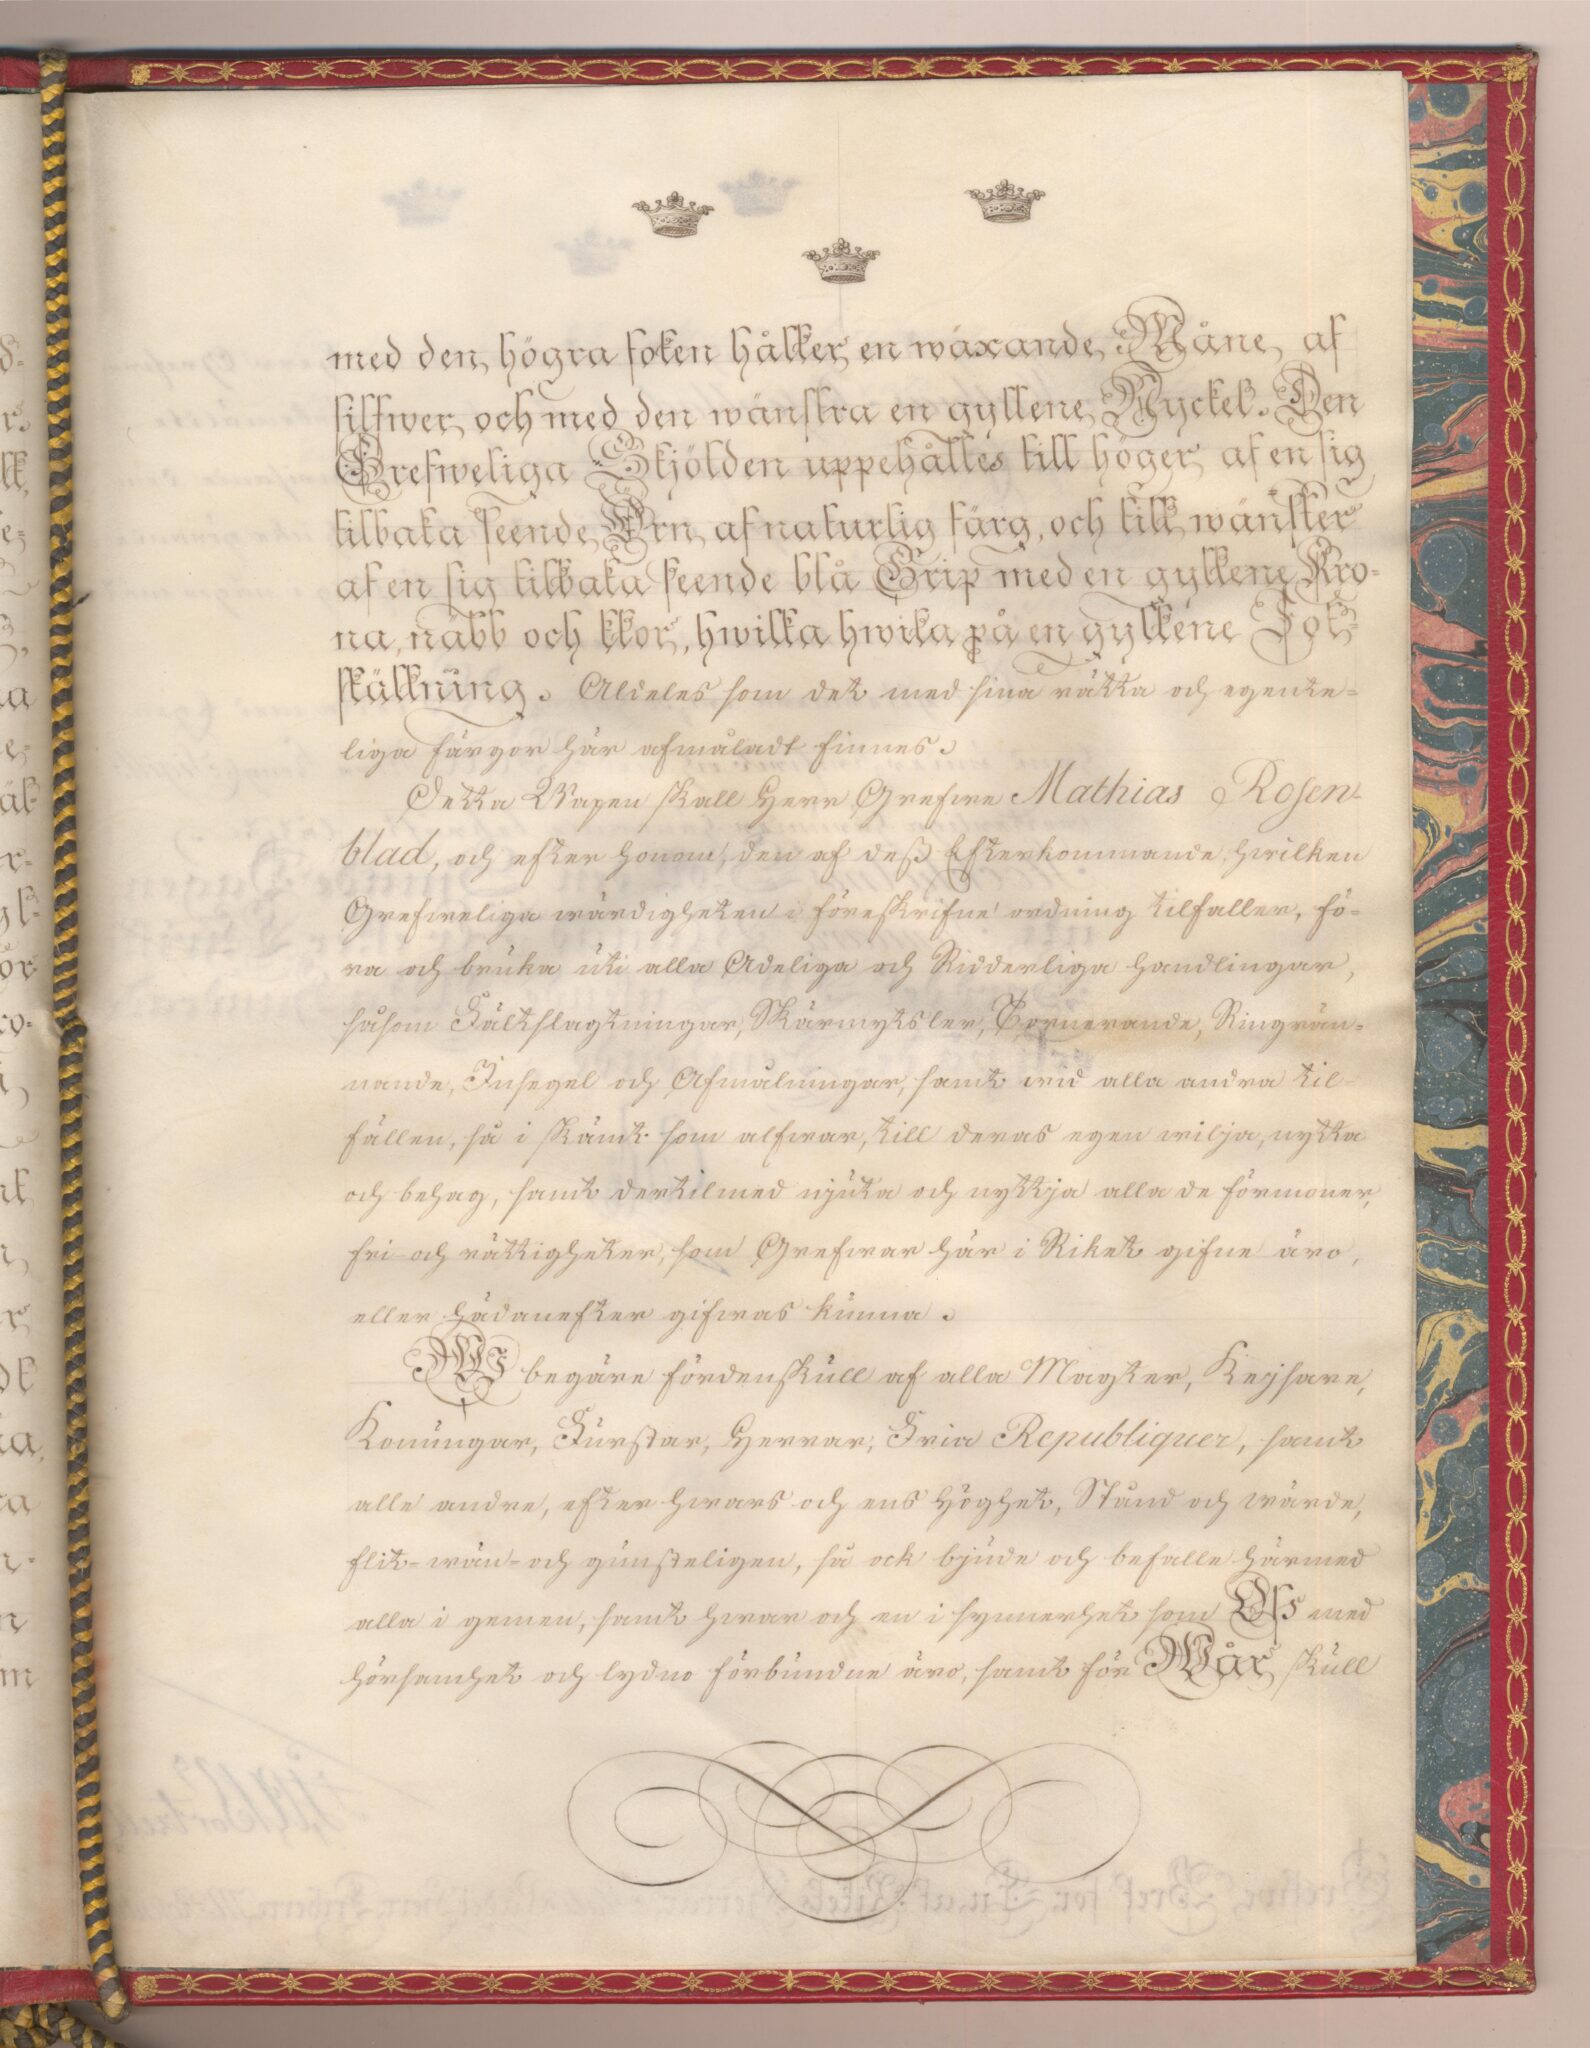 med den högra foten håller en wäxande Måne, af
silfwer, och med den wänstra en gyllene Nyckel. Den
Grefweliga Skjölden uppehålles till höger af en sig
tilbaka seende Örn af naturlig färg, och till wänster
af en sig tilbaka seende blå Grip med en gyllene Kro-
na, näbb och klor, hwilka hwila på en gyllene Fot-
ställning. Aldeles som det med sina rätta och egente-
liga färgor här afmåladt finnes.
Detta Wapen skall Herr Grefwe Mathias Rosen-
blad, och efter honom, den af deß Efterkommande, hwilken
Grefweliga wärdigheten i föreskrifne ordning tilfaller, fö-
ra och bruka uti alla Adeliga och Ridderliga handlingar,
såsom Fältslagtningar, Skärmytsler, Tornerande, Ringrän-
nande, Insegel och Afmålningar, samt wid alla andra til-
fällen, så i skämt som alfwar, till deras egen wilja, nytta
och behag, samt dertilmed njuta och nyttja alla de förmoner,
fri- och rättigheter, som Grefwar här i Riket gifne äro,
eller hädanefter gifwas kunna.
Wi begäre fördenskull af alla Magter, Kejsare,
Konungar, Furstar, Herrar, Fria Republiquer, samt
alle andre, efter hwars och ens Höghet, Stånd och wärde,
flit- wän- och gunsteligen, så ock bjude och befalle härmed
alla i gemen, samt hwar och en i synnerhet som Oss med
hörsamhet och lydno förbundne äro, samt för Wår skull